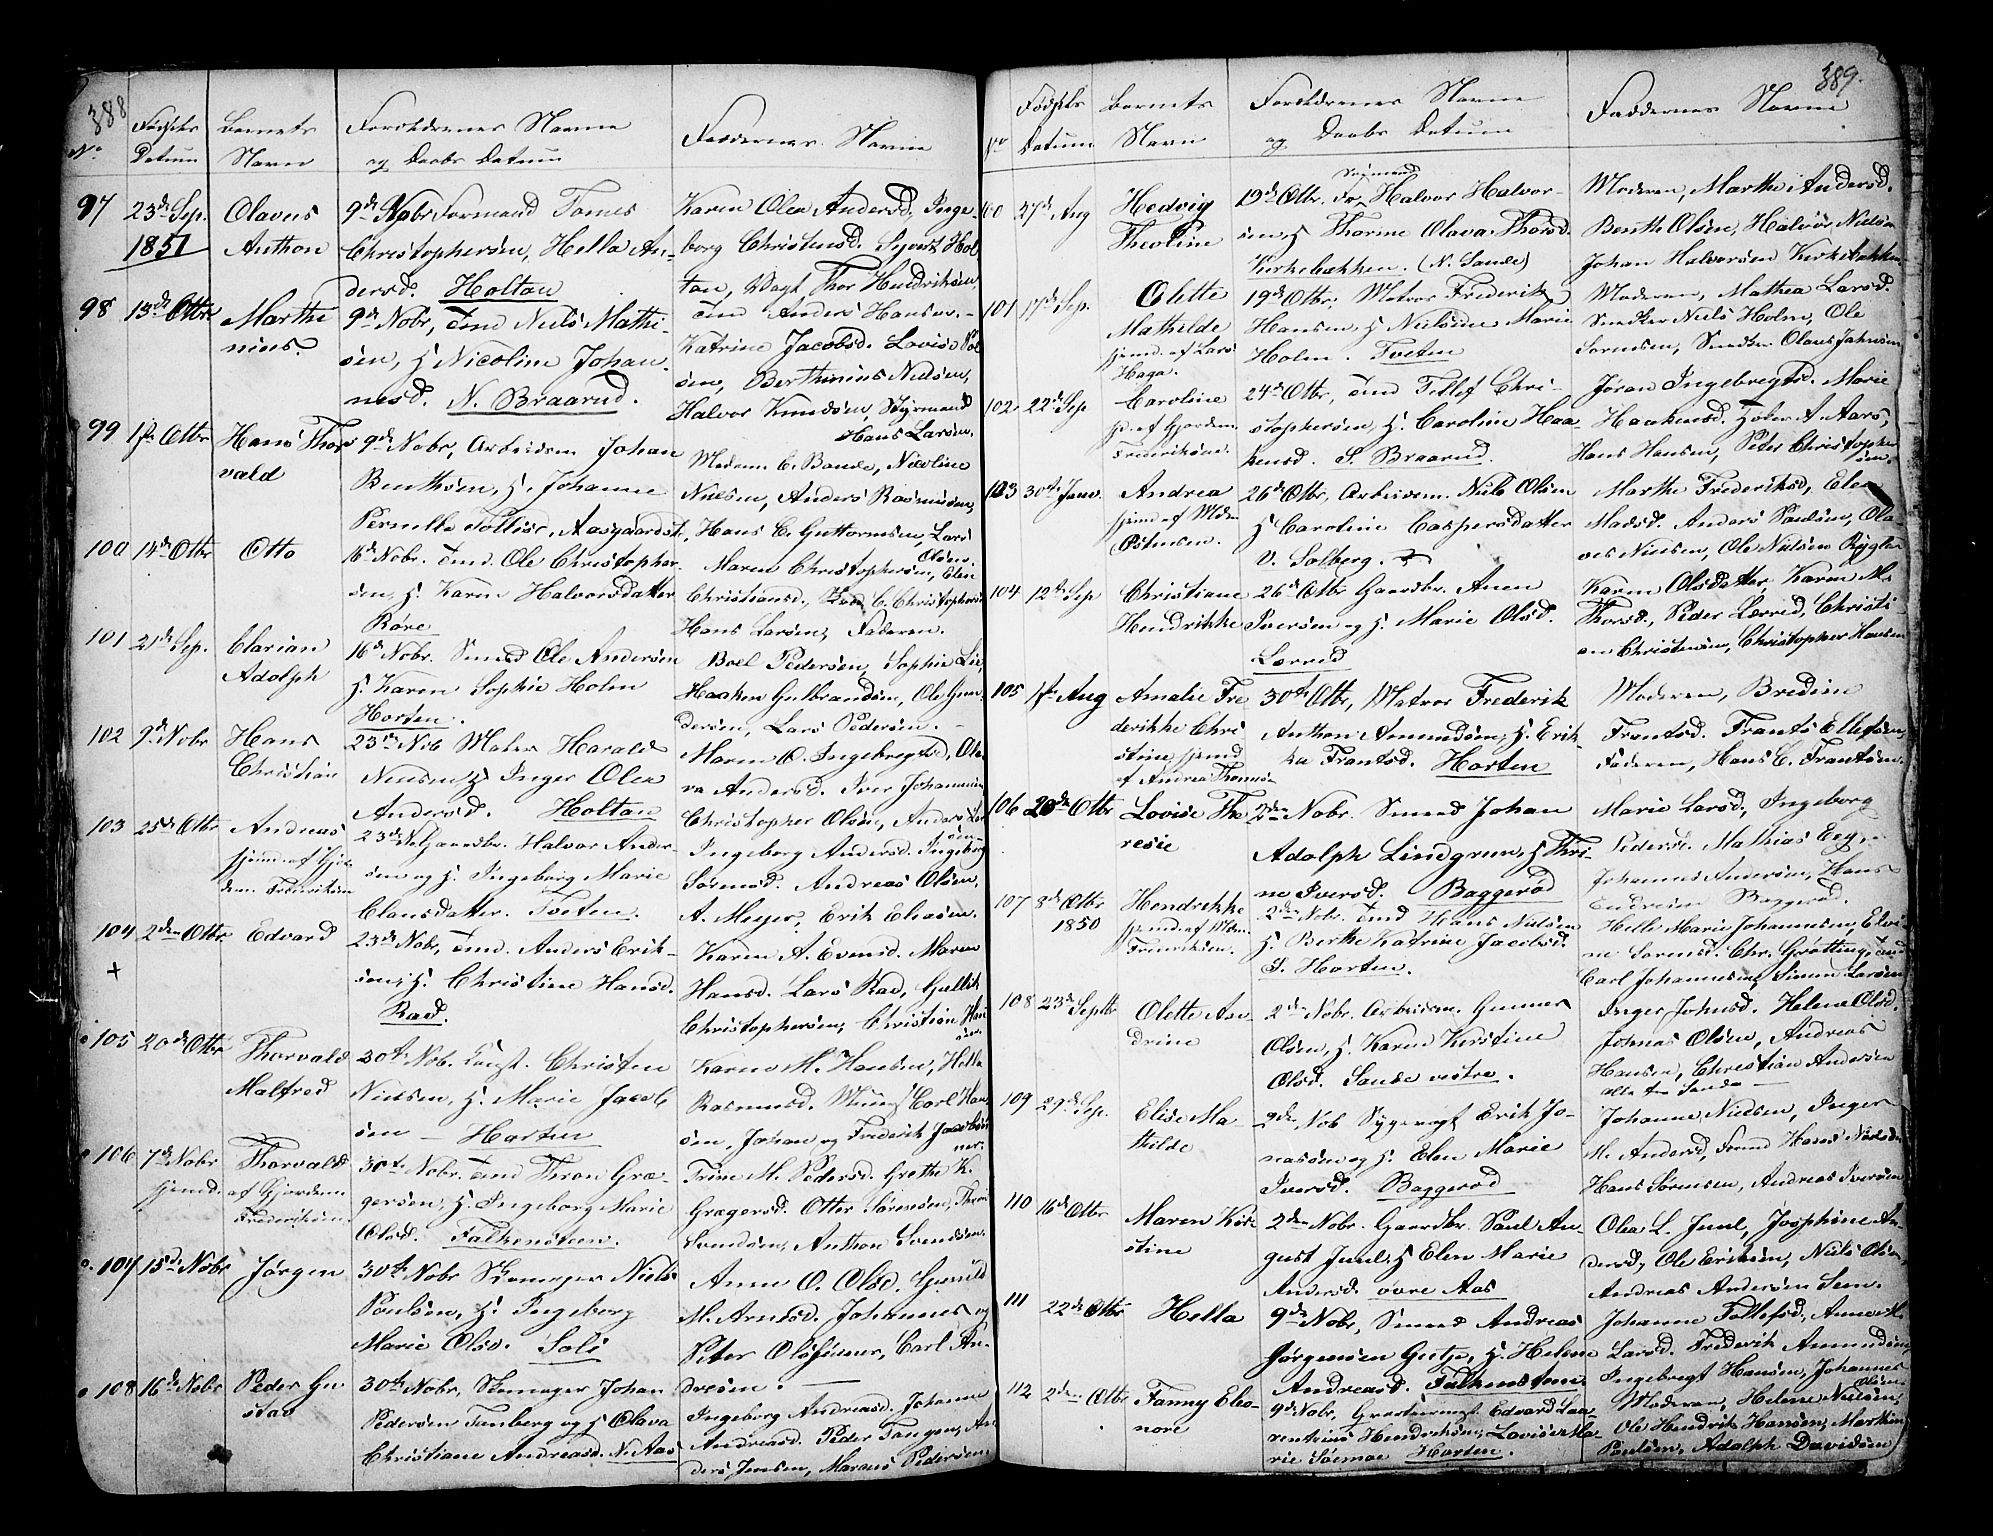 388
No
Fødsels Datum
Barnets Navn
Forældrenes Navne og Daabs Datum
Faddernes Navne
97
23de Sep. 1851
Olavus Anthon
9de Nobr Formand
Christophersen, Hella An-
dersd. Holtan
Karen Olea Andersd, Inge-
borg Christensd. Syvert Hol
tan, Thor Hendriksen,
98
13de Otbr
Marthi
nius.
9de Nobr, Tmd Niels Mathi-
sen, H. Nicoline Johan
nesd. N. Braarud.
Tmd Anders Hansen. -
Katrine Jacobsd. Lovise
sen, Berthinius Nielsen,
Halvor Knudsen, Styrmand
Hans Larsen.
99
1ste Otbr
Hans Thor
vald
9de Nobr, Arbeidsm Johan
Benthsen, H. Johanne
Pernille Aasgaardst.
Madam C. Nicoline
Nielsen, Anders Rasmussen,
Hans C. Guttormsen, Lars
Olsen.
100
14de Otbr
Otto
16de Nobr. Tmd. Ole Christopher
sen, H. Karen Halvorsdatter
Røre
Maren Christophersen, Elen
Christiansd., C. Christophers
Hans Larsen, Faderen.
101
21de Sep.
Clarian
Adolph
16de Nobr. Smed Ole Andersen
H. Karen Sophie Holm
Horten.
Boel Pedersen, Sophie Lie,
Haaken Gulbrandsen, Ole Gun-
dersen, Lars Pedersen. -
102
9de Nobr
Hans
Christian
23de Nob Maler Harald
Nielsen H Inger Olea
Andersd. Holtan
Maren O. Ingebregtsd, Ola
va Andersd. Iver Johannsen
Christopher Olsen, Anders
103
25de Otbr
Andreas
hjemd. af Gjor
dem. Frederiksen
23de N. Gaardbr. Halvor Ander-
sen og H. Ingeborg Marie
Clausdatter. Tveten.
Ingeborg Andersd. Ingeborg
Sørensd. Andreas Olsen,
A. Meyer, Erik Eliasen.
104
+
2den Otbr.
Edvard
23de Nobr, Tmd. Anders Erik-
sen, H. Christine Hansd.
Rad.
Karen A. Evensd. Maren
Hansd. Lars Rad, Gullik
Christophersen, Christian Han
sen.
105
20de Otbr
Thorvald
Malfred
30te Nob. Christen
Nielsen, H. Marie Jacob
sen - Horten
Karen M. Hansen, Hella
Rasmusd. Carl Han
sen, Johan og Frederik Jacobsen
106
7de Nobr
hjemd.
Thorvald
af Gjordem
Frederiksen.
30te Nobr. Tmd Thron Græ-
gersen, H. Ingeborg Marie
Olsd. Falkensteen.
Trine M. Pedersd. Grethe K.
Grægersd. Otter Sørensen, Thron
Svendsen, Anthon Svendsen.
107
15de Nobr
Jørgen
30te Nobr Skomager Niels
Poulsen, H. Ingeborg
Marie Olsd. Soli
Anne O. Olsd. Gunild
M. Arntsd. Johannes og
Peter Carl An-
dresen. -
108
16de Nobr
Peder Gu
stav
30te Nobr, Skomager Johan
Pedersen Tunberg og H Olava
Christiane Andreasd. N. Aas
Ingeborg Andreasd. Johanne
Andreasd. Peder Tangen, An
ders Jensen, Marcus Pedersen
389.
No
Fødsels Datum
Barnets Navn
Forældrenes Navne
og Daabs Datum
Faddernes Navne
100
27de Aug
Hedvig
Theoline
Sømand
19de Otbr. Halvor Halvor-
sen, H Thorine Olava Thorsd.
Kirkebakken. (N. Sande)
Moderen, Marthe Andersd.
Benthe Olsen, Halvor Nielsen
Johan Halvorsen Kirkebakken
101
17de Sep.
Olette
Mathilde
hjemd. af Lars
Haga.
19de Otbr, Matros Frederik
Hansen, H Nielsine Marie
Holm. Tveten
Moderen, Mathea Larsd.
Snedker Niels Holm, Ole
Sørensen, Snedker Olaus Jahnsen
102
22de Sep
Caroline
hj. af Gjordem.
Frederiksen.
24de Otbr, Tmd Tellef Chri-
stophersen, H. Caroline Haa-
kensd. S. Braarud.
Jøran Ingebregtsd. Marie
Haakensd. A. Aars,
Hans Hansen, Peder Christopher
sen.
103
30te Janv.
Andrea
hjemd. af Mdm
26de Otbr, Arbeidsm. Niels Olsen
H Caroline Caspersdatter
V. Solberg.
Marthe Frederiksd, Elen
Madsd. Anders Paulsen, Ola
ves Nielsen, Ole Nielsen Rygla
104
12te Sep
Christiane
Hendrikke
26de Otbr Gaardbr. Anen
Iversen og H. Marie Olsd.
Lærred
Karen Olsdatter, Karen M.
Thorsd., Peder Lærred, Christi
an Christensen, Christopher Hansen
105
1ste Aug
Amalie Fre
derikke Chri
stine hjemd
af Andrea Thomse
30te Otbr, Matros Frederik
Anthon Amundsen, H. Erik-
ka Frantsd. Horten
Moderen, Bredine
Frantsd. Frants Ellefsen,
Faderen, Hans C. Frantsen.
106
20de Otbr
Lovise The
resie
2den Nobr. Smed Johan
Adolph Lindgren, H Thri-
ne Iversd. Baggerød
Marie Larsd, Ingeborg
Pedersd. Mathias Eeg, -
Johannes Andersen, Hans
Endresen Baggerød.
107
8de Otbr
1850
Hendrikke
hjemd. af Mdm.
Frederiksen.
2den Nobr. Tmd Hans Nielsen
H. Berthe Katrine Jacobsd.
S. Horten.
Helle Marie Johannesen, Elvi-
ne Sørensd. Chr. Grøtting,
Carl Johannesen, Simon Larsen
108
23de Septbr
Olette An-
drine
2den Nobr. Arbeidsm. Gunner
Olsen, H. Karen Kirstine
Olsd. Sande vestre.
Inger Johnsd. Helene Olsd.
Johnas Olsen, Andreas
Hansen, Christian Andersen
alle fra Sande -
109
29de Sep.
Elise Ma
thilde
2den Nob Erik Jo-
nasen og H. Elen Marie
Iversd. Baggerød
Johanne Nielsen, Inger
M. Andersd, Hans Nielsen
Hans Sørensen, Andreas Iversen
110
16de Otbr
Maren Kir
stine
2den Nobr. Gaardbr. Paul Au-
gust Juul, H Elen Marie
Andersd. øvre Aas
Olea L. Juul, Josephine An-
dersd, Ole Eriksen, Niels Olsen,
Andreas Andersen Sem.
111
22de Otbr
Hella
9de Nobr, Smed Andreas
Jørgensen Gutze, H. Helene
Andreasd. Falkensteen
Johanne Tollefsd, Anne M.
Larsd. Frederik Amundsen,
Ingebregt Hansen, Johannes
Olsen
112
2den Otbr
Fanny Eleo
nore
9de Nobr, Edvard Lau-
rentius Hendriksen, Lovise Ma
rie Horten.
Moderen, Helene Nielsen,
Ole Hendrik Hansen, Marthin
Paulsen, Adolph Davidsen